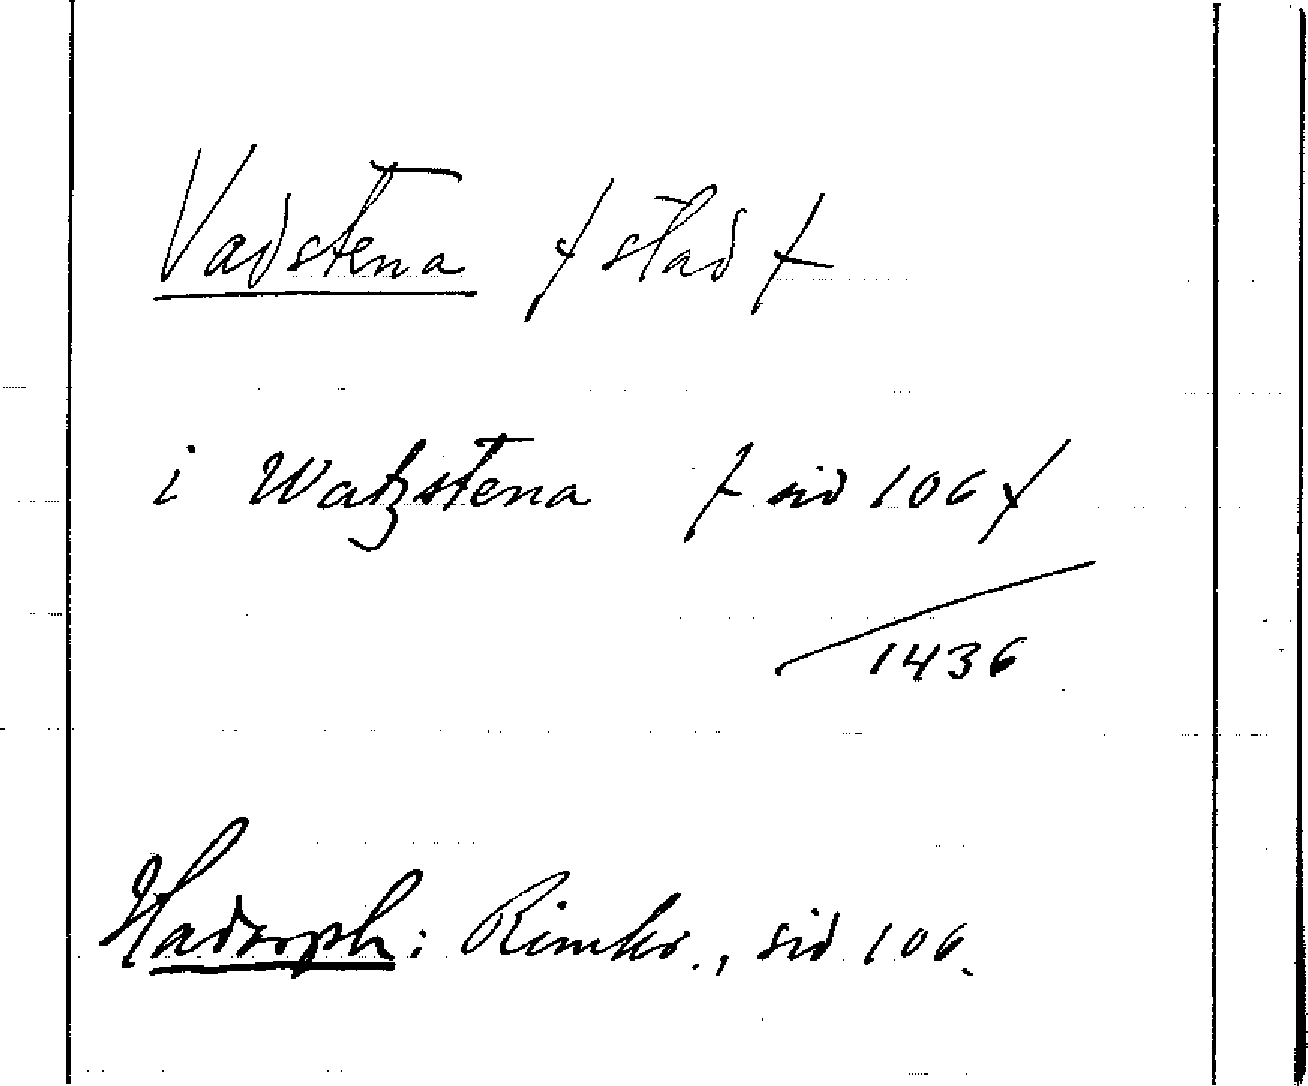 Vadstena / stad /
i Watzstena / sid 106 /
1436
Hadorph: Rimkr., sid 106.